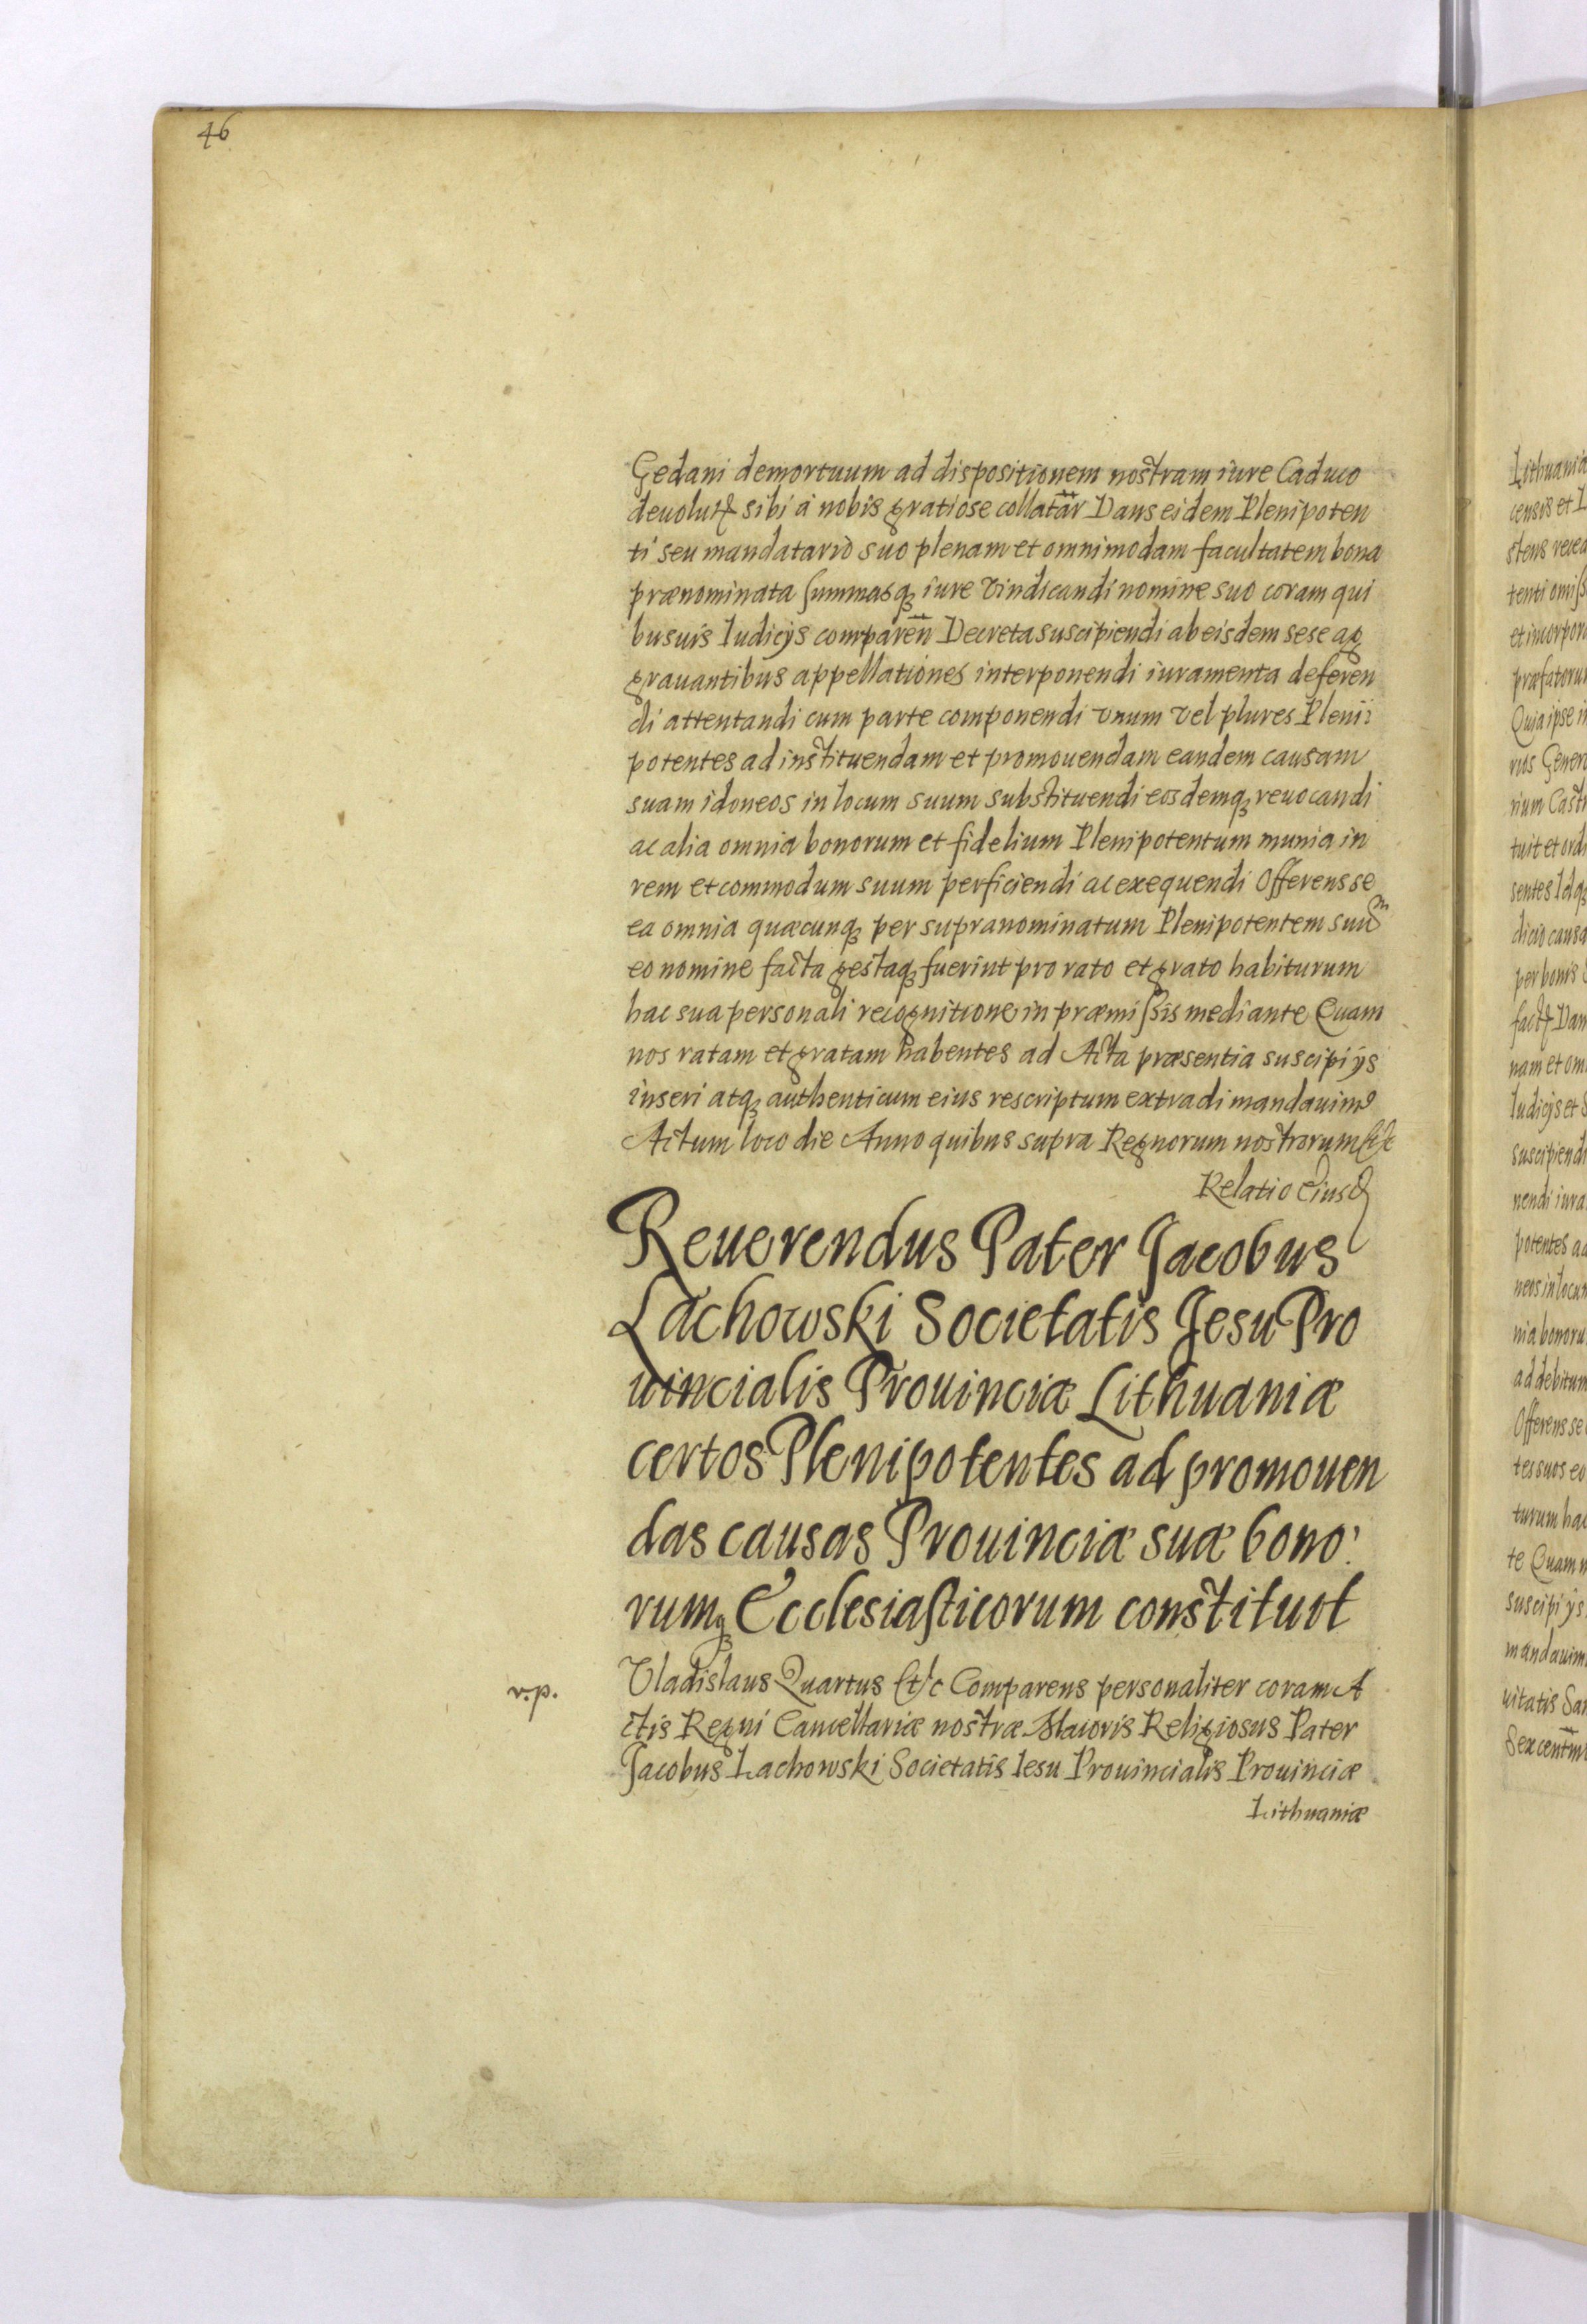 46
Gedani demortuum ad dispositionem nostram iure Caduco
deuolut sibi à nobis gratiose collatar Dans eidem Plenipoten
ti seu mandatario suo plenam et omnimodam facultatem bona
prænominata summasq iure vindicandi nomine suo coram qui
busuis Iudicijs comparen Decreta suscipiendi ab eisdem sese ag
grauantibus appellationes interponendi iuramenta deferen
di attentandi cum parte componendi vnum vel plures Pleni:
potentes ad instituendam et promouendam eandem causam
suam idoneos in locum suum substituendi eosdemq reuocandi
ac alia omnia bonorum et fidelium Plenipotentum munia in
rem et commodum suum perficiendi ac exequendi Offerens se
ea omnia quæcunq per supranominatum Plenipotentem suu
eo nomine facta gestaq fuerint pro rato et grato habiturum
hac sua personali recognitione in præmissis mediante Quam
nos ratam et gratam habentes ad Acta præsentia suscipi ijs
inseri atq authenticum eius rescriptum extradi mandauim9
Actum loco die Anno quibus supra Regnorum nostrorum etc
Relatio eiusd
Reuerendus Pater Jacobus
Lachowski Societatis Jesu Pro
uincialis Prouinciæ Lithuaniæ
certos Plenipotentes ad promouen
das causas Prouinciæ suæ bono:
rumq Ecclesiasticorum constituit
Vladislaus Quartus etc Comparens personaliter coram A
ctis Regni Cancellariæ nostræ Maioris Religiosus Pater
Jacobus Lachowski Societatis Iesu Prouincialis Prouinciæ
Lithuaniæ